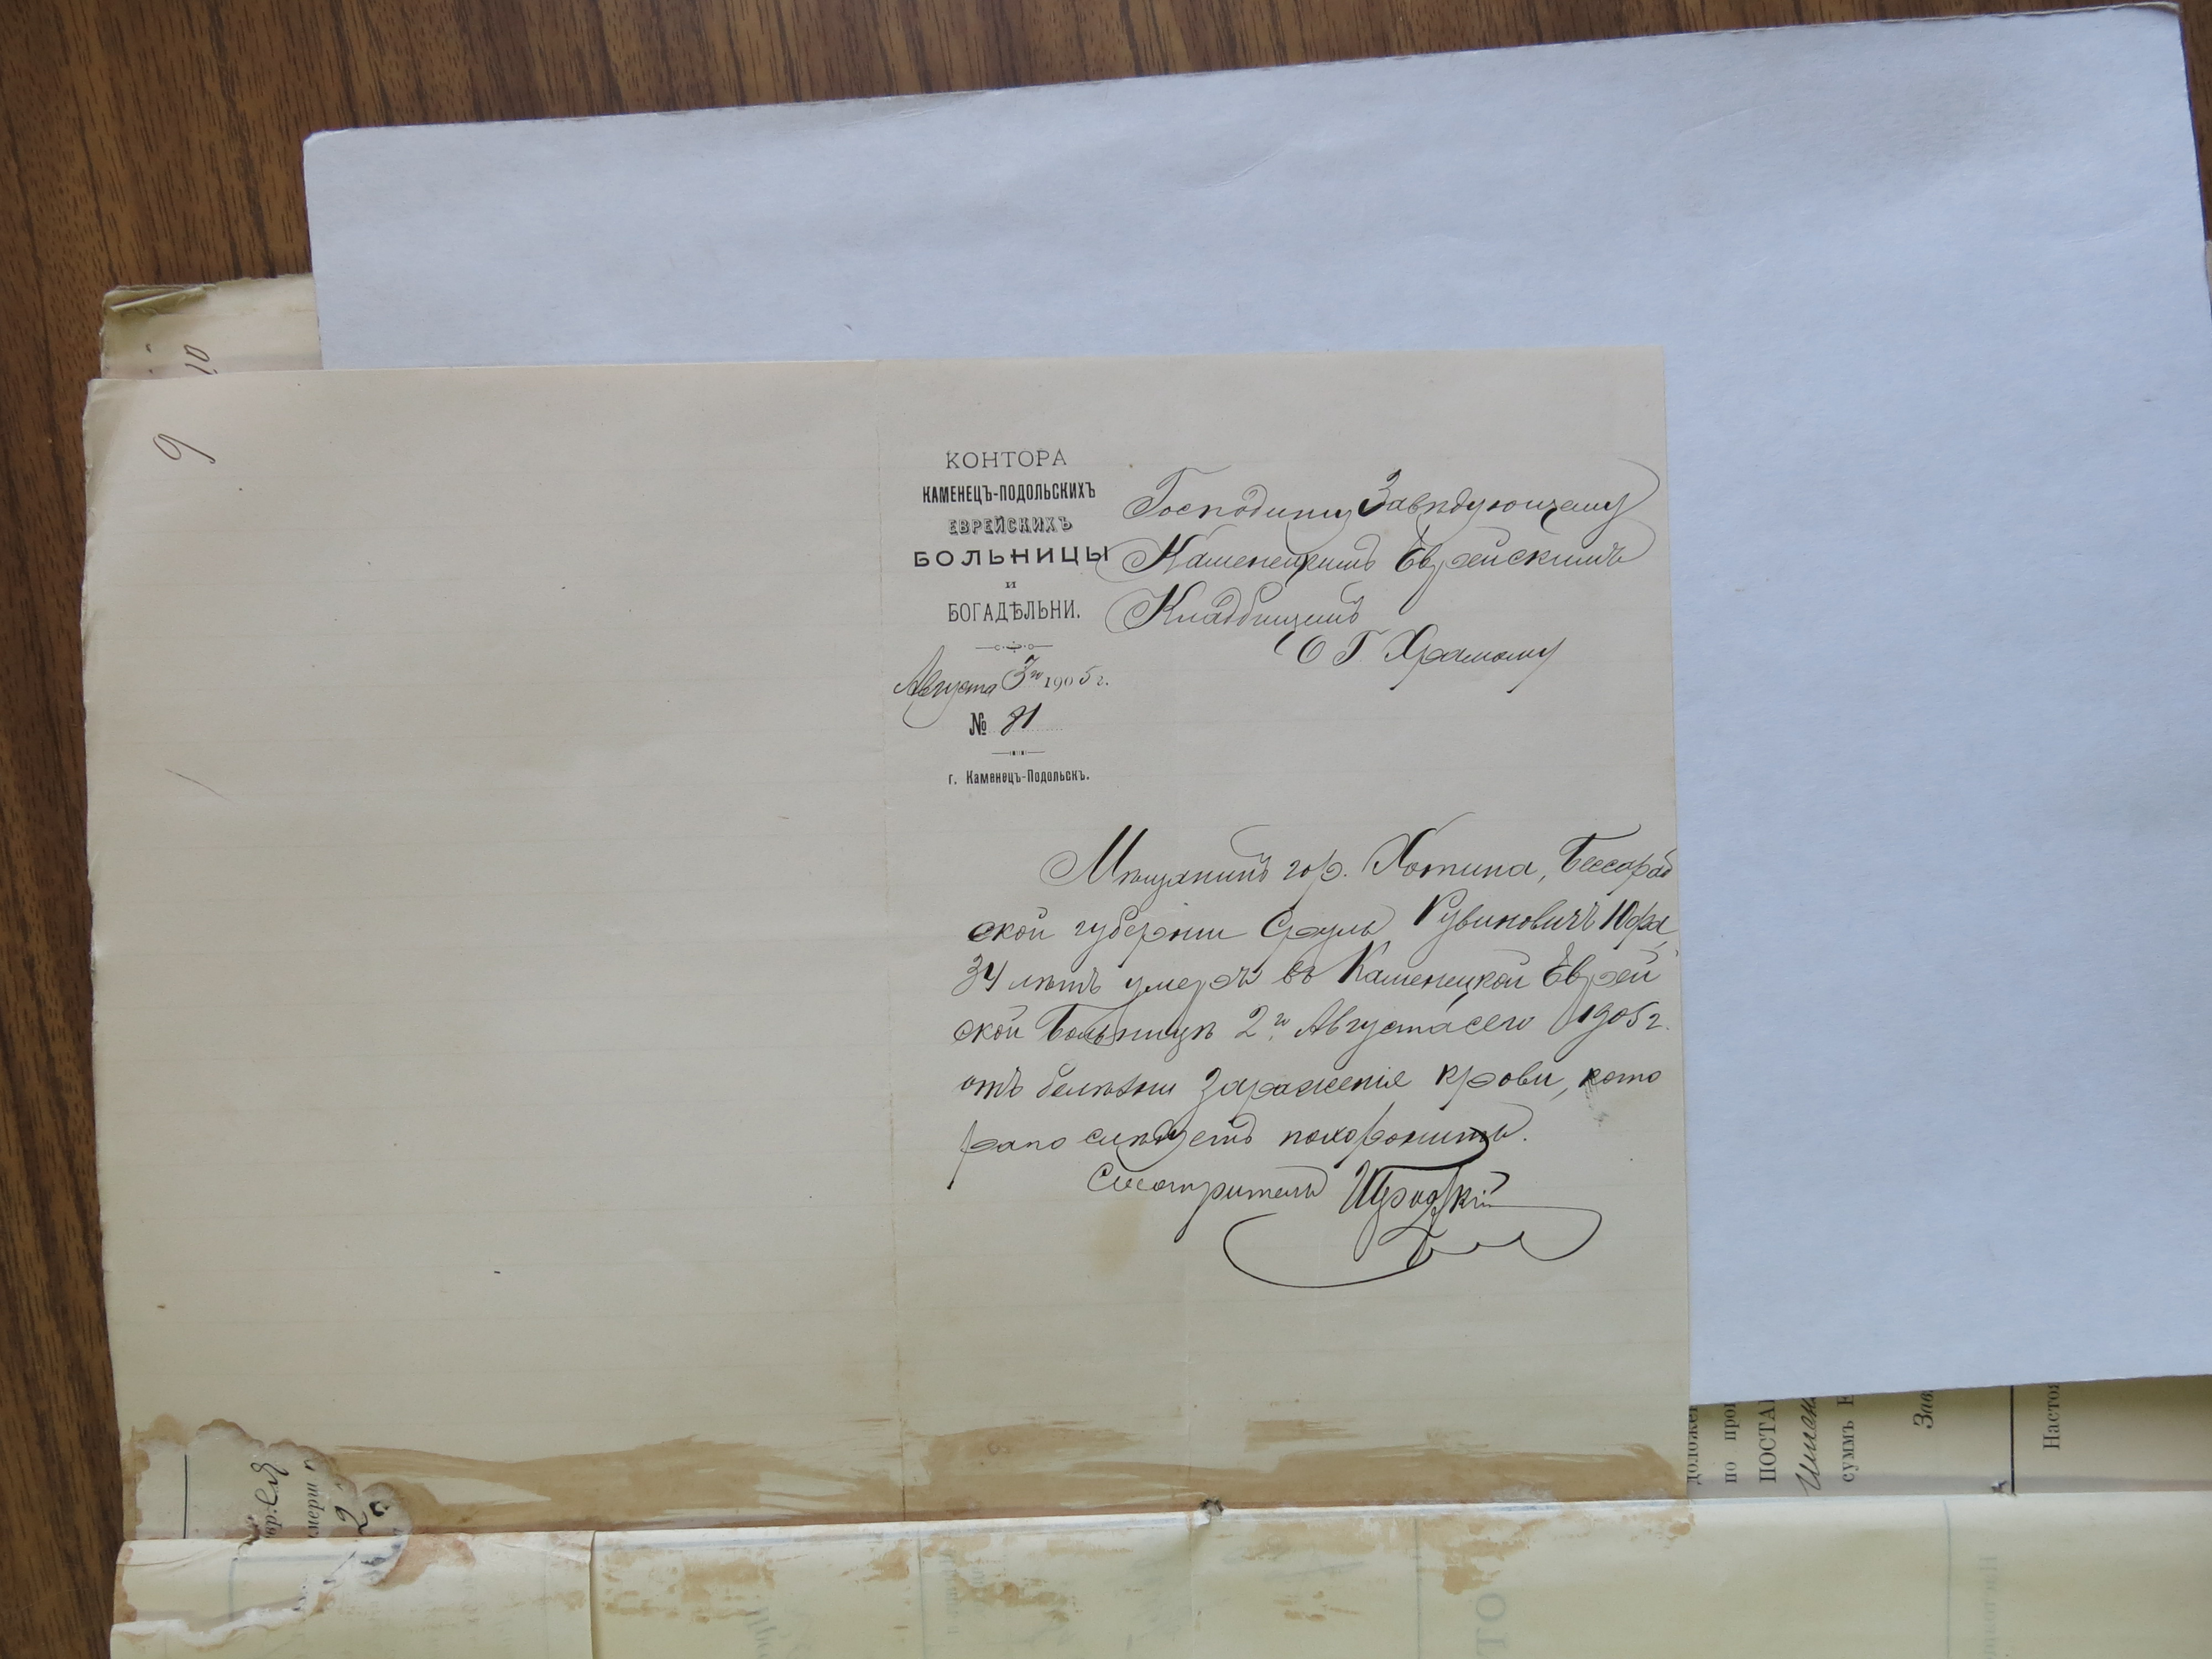 9
10
КОНТОРА
КАМЕНЕЦЪ-ПОДОЛЬСКИХЪ
ЕВРЕЙСКИХЪ
БОЛЬНИЦЫ
и
БОГАДѢЛЬНИ.
Августа 3го 1905 г.
№ 81
г. Каменецъ-Подольскъ.
Господину Завѣдующему
Каменецкимъ Еврейскимъ
Кладбищемъ
Г. Храмому
Мѣщанинъ гор. Хотина, Бессараб
ской губерніи Сруль Рувиновичъ Юфа,
34 лѣтъ умеръ въ Каменецкой Еврей
ской Больницѣ 2го Августа сего 1905 г.
отъ болѣзни зараженіе крови, кото
раго слѣдуетъ похоронить.
Смотритель
долже
по про
ПОСТА
суммъ
Зав
Насто
мерш
2
ТО